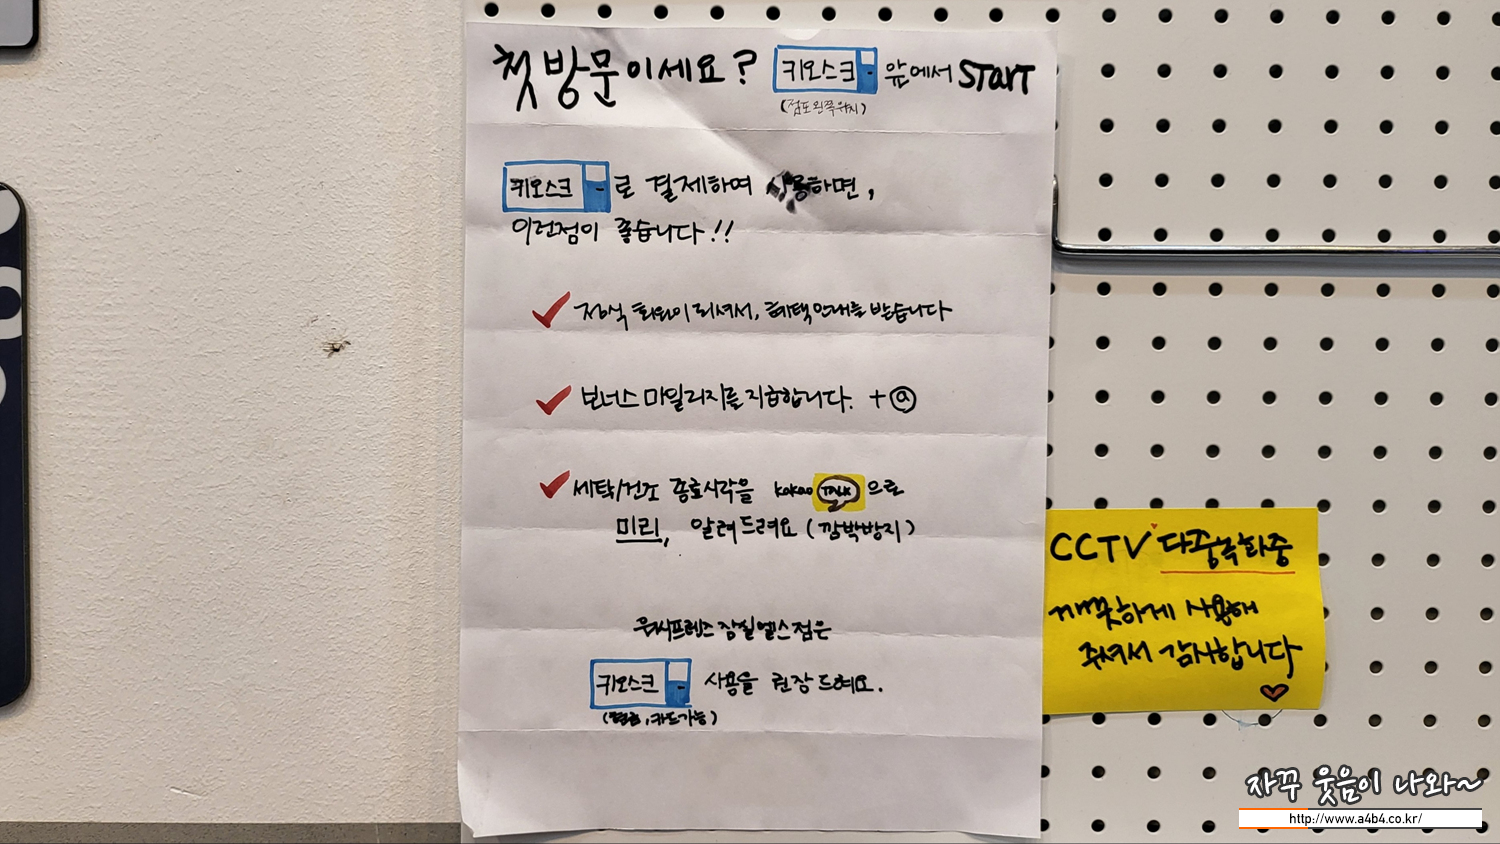 첫 방문이세요? 키오스크 앞에서 START
(점포왼쪽위치)
키오스크 로 결제하여 사용하면,
이런점이 좋습니다!!
정식 회원이 되셔서, 혜택안내를 받습니다
보너스 마일리지를 지급합니다. + ⓐ
세탁/건조 종료시각을 kakao TALK 으로
미리, 알려드려요 (깜박방지)
워시프렌즈 잠실엘스점은
키오스크 사용을 권장드려요.
(현금, 카드가능)
CCTV 다중녹화중
깨끗하게 사용해
주셔서 감사합니다
자꾸 웃음이 나와~
http://www.a4b4.co.kr/